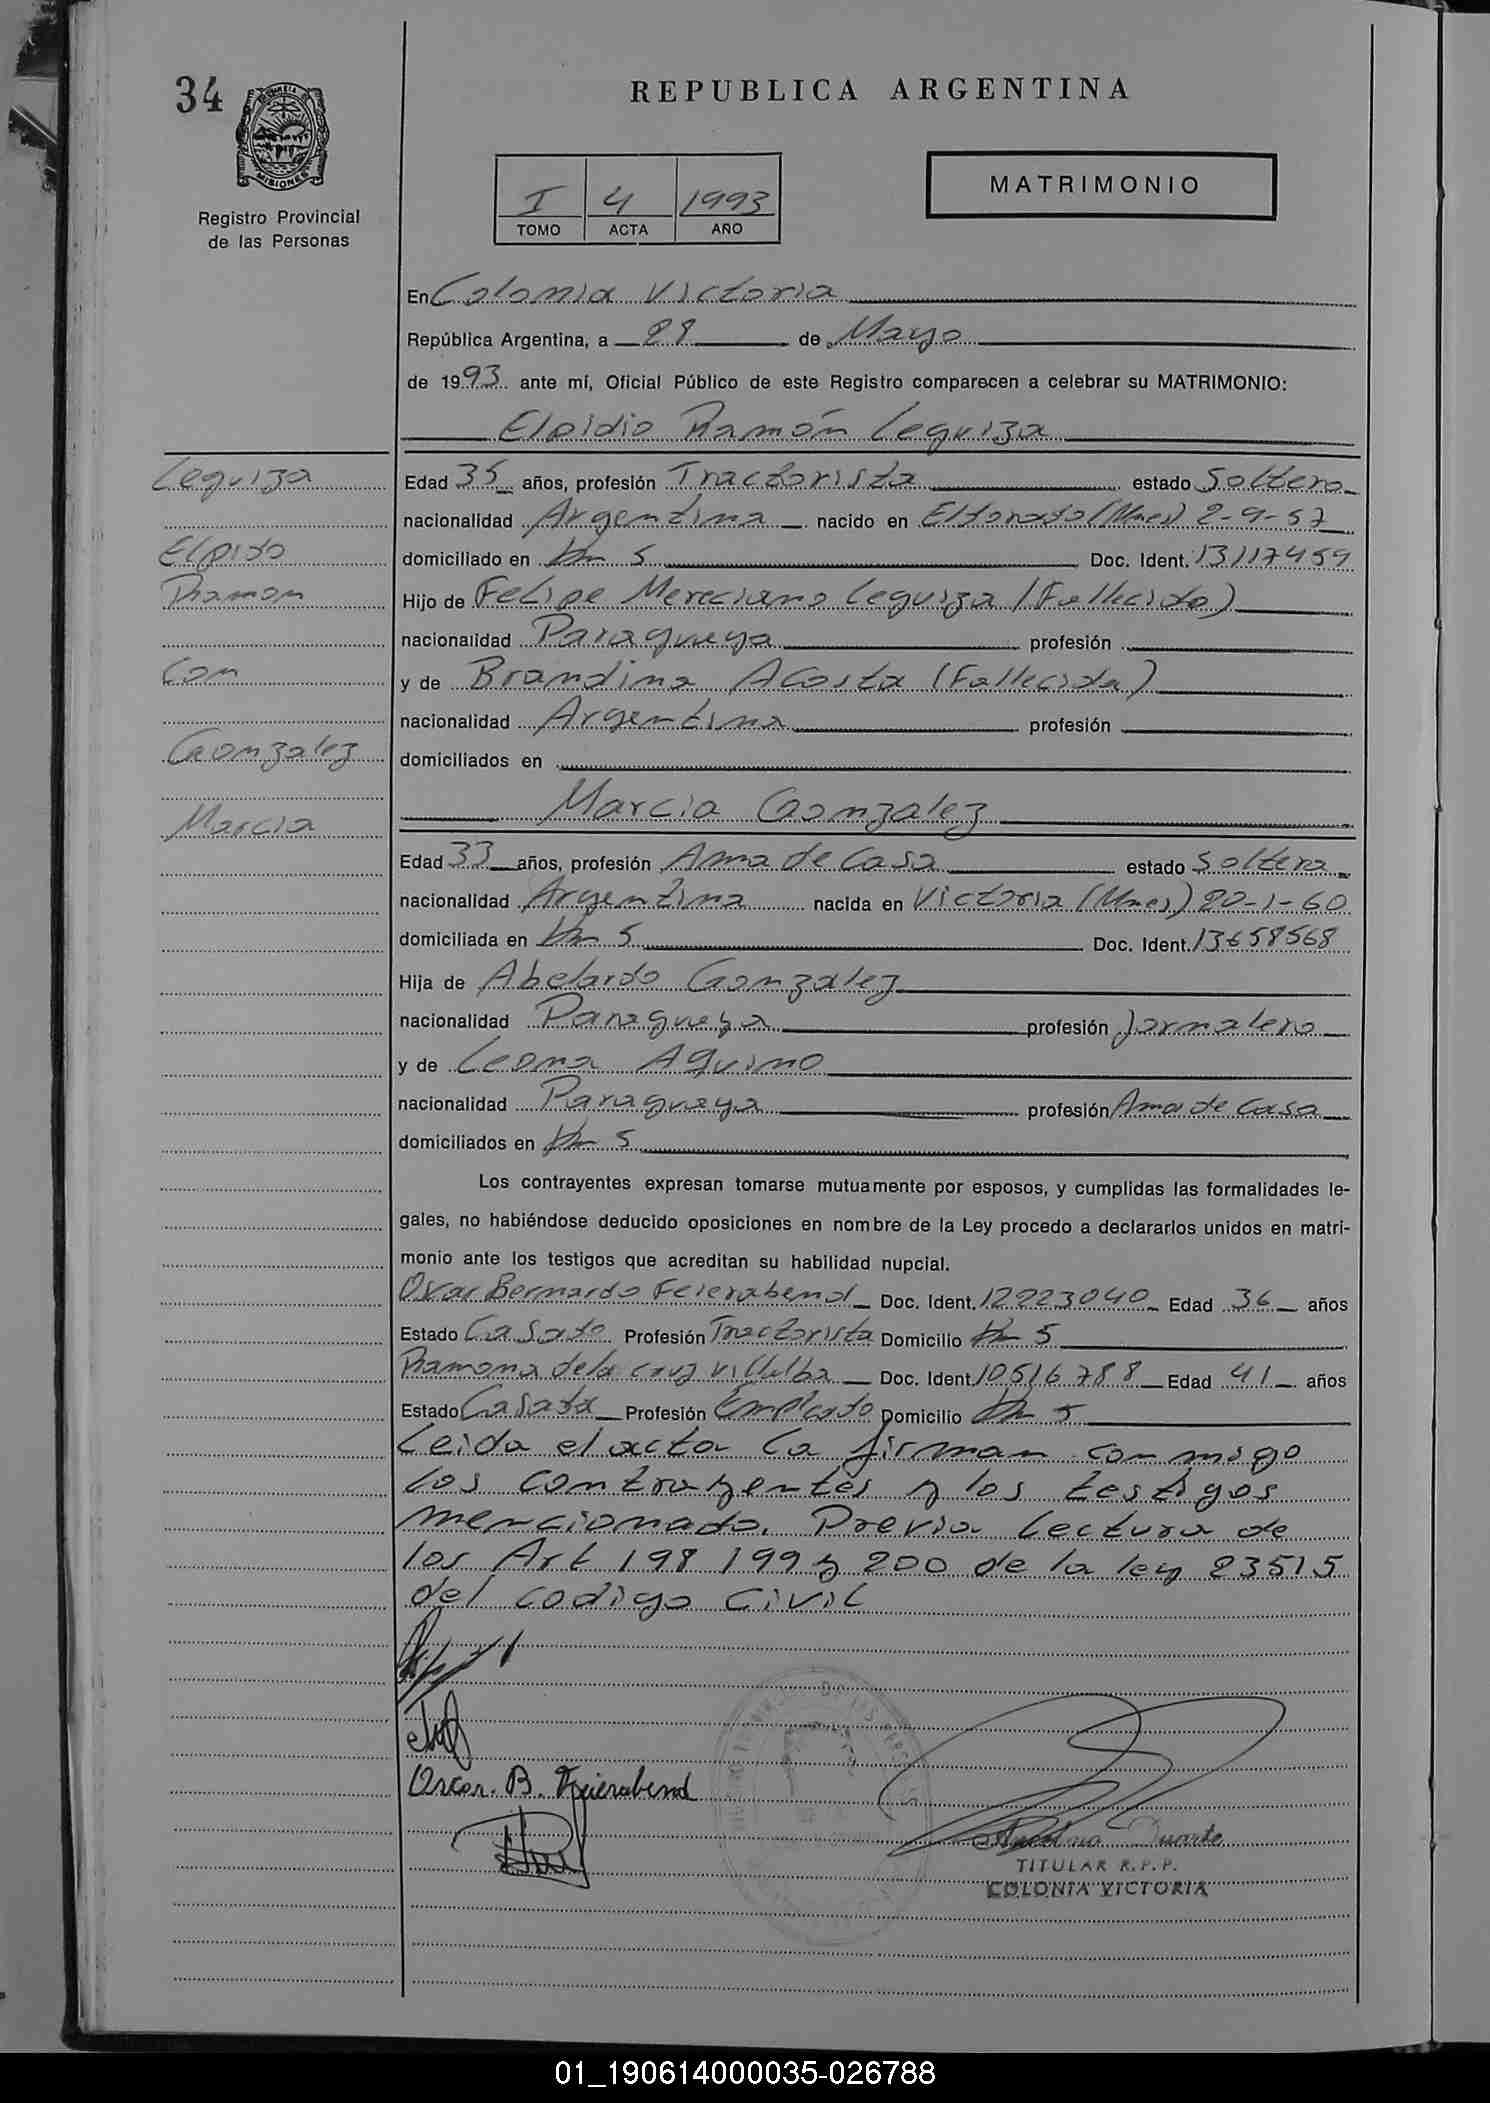 34
MISIONES
Registro Provincial
de las Personas
REPUBLICA ARGENTINA
I 4 1993
TOMO ACTA AÑO
MATRIMONIO
En Colonia Victoria
República Argentina, a 28 de Mayo
de 1993 ante mí, Oficial Público de este Registro comparecen a celebrar su MATRIMONIO:
Elpidio Ramón Leguiza
Leguiza
Elpido
Ramon
Con
Gonzalez
Marcia
Edad 35 años, profesión Tractorista estado Soltero
nacionalidad Argentina nacido en Eldorado (Mnes) 2-9-57
domiciliado en Km 5 Doc. Ident. 13117459
Hijo de Felipe Mereciano Leguiza (Fallecido)
nacionalidad Paraguaya profesión
y de Brandina Acosta (Fallecida)
nacionalidad Argentina profesión
domiciliados en
Marcia Gonzalez
Edad 33 años, profesión Ama de Casa estado Soltera
nacionalidad Argentina nacida en Victoria (Mnes) 20-1-60
domiciliada en Km 5 Doc. Ident. 13658568
Hija de Abelardo Gonzalez
nacionalidad Paraguaya profesión Jornalero
y de Leona Aquino
nacionalidad Paraguaya profesión Ama de Casa
domiciliados en Km 5
Los contrayentes expresan tomarse mutuamente por esposos, y cumplidas las formalidades le-
gales, no habiéndose deducido oposiciones en nombre de la Ley procedo a declararlos unidos en matri-
monio ante los testigos que acreditan su habilidad nupcial.
Oscar Bernardo Feierabend Doc. Ident. 12223040 Edad 36 años
Estado Casado Profesión Tractorista Domicilio Km 5
Ramona de la Cruz Villalba Doc. Ident. 10516788 Edad 41 años
Estado Casada Profesión Empleado Domicilio Km 5
Leida el acta la firman conmigo
los contrayentes y los testigos
mencionado. Previa lectura de
los Art 198 199 y 200 de la ley 23515
del codigo Civil
Oscar. B. Feierabend
Duarte
TITULAR R.P.P.
COLONIA VICTORIA
01_190614000035-026788